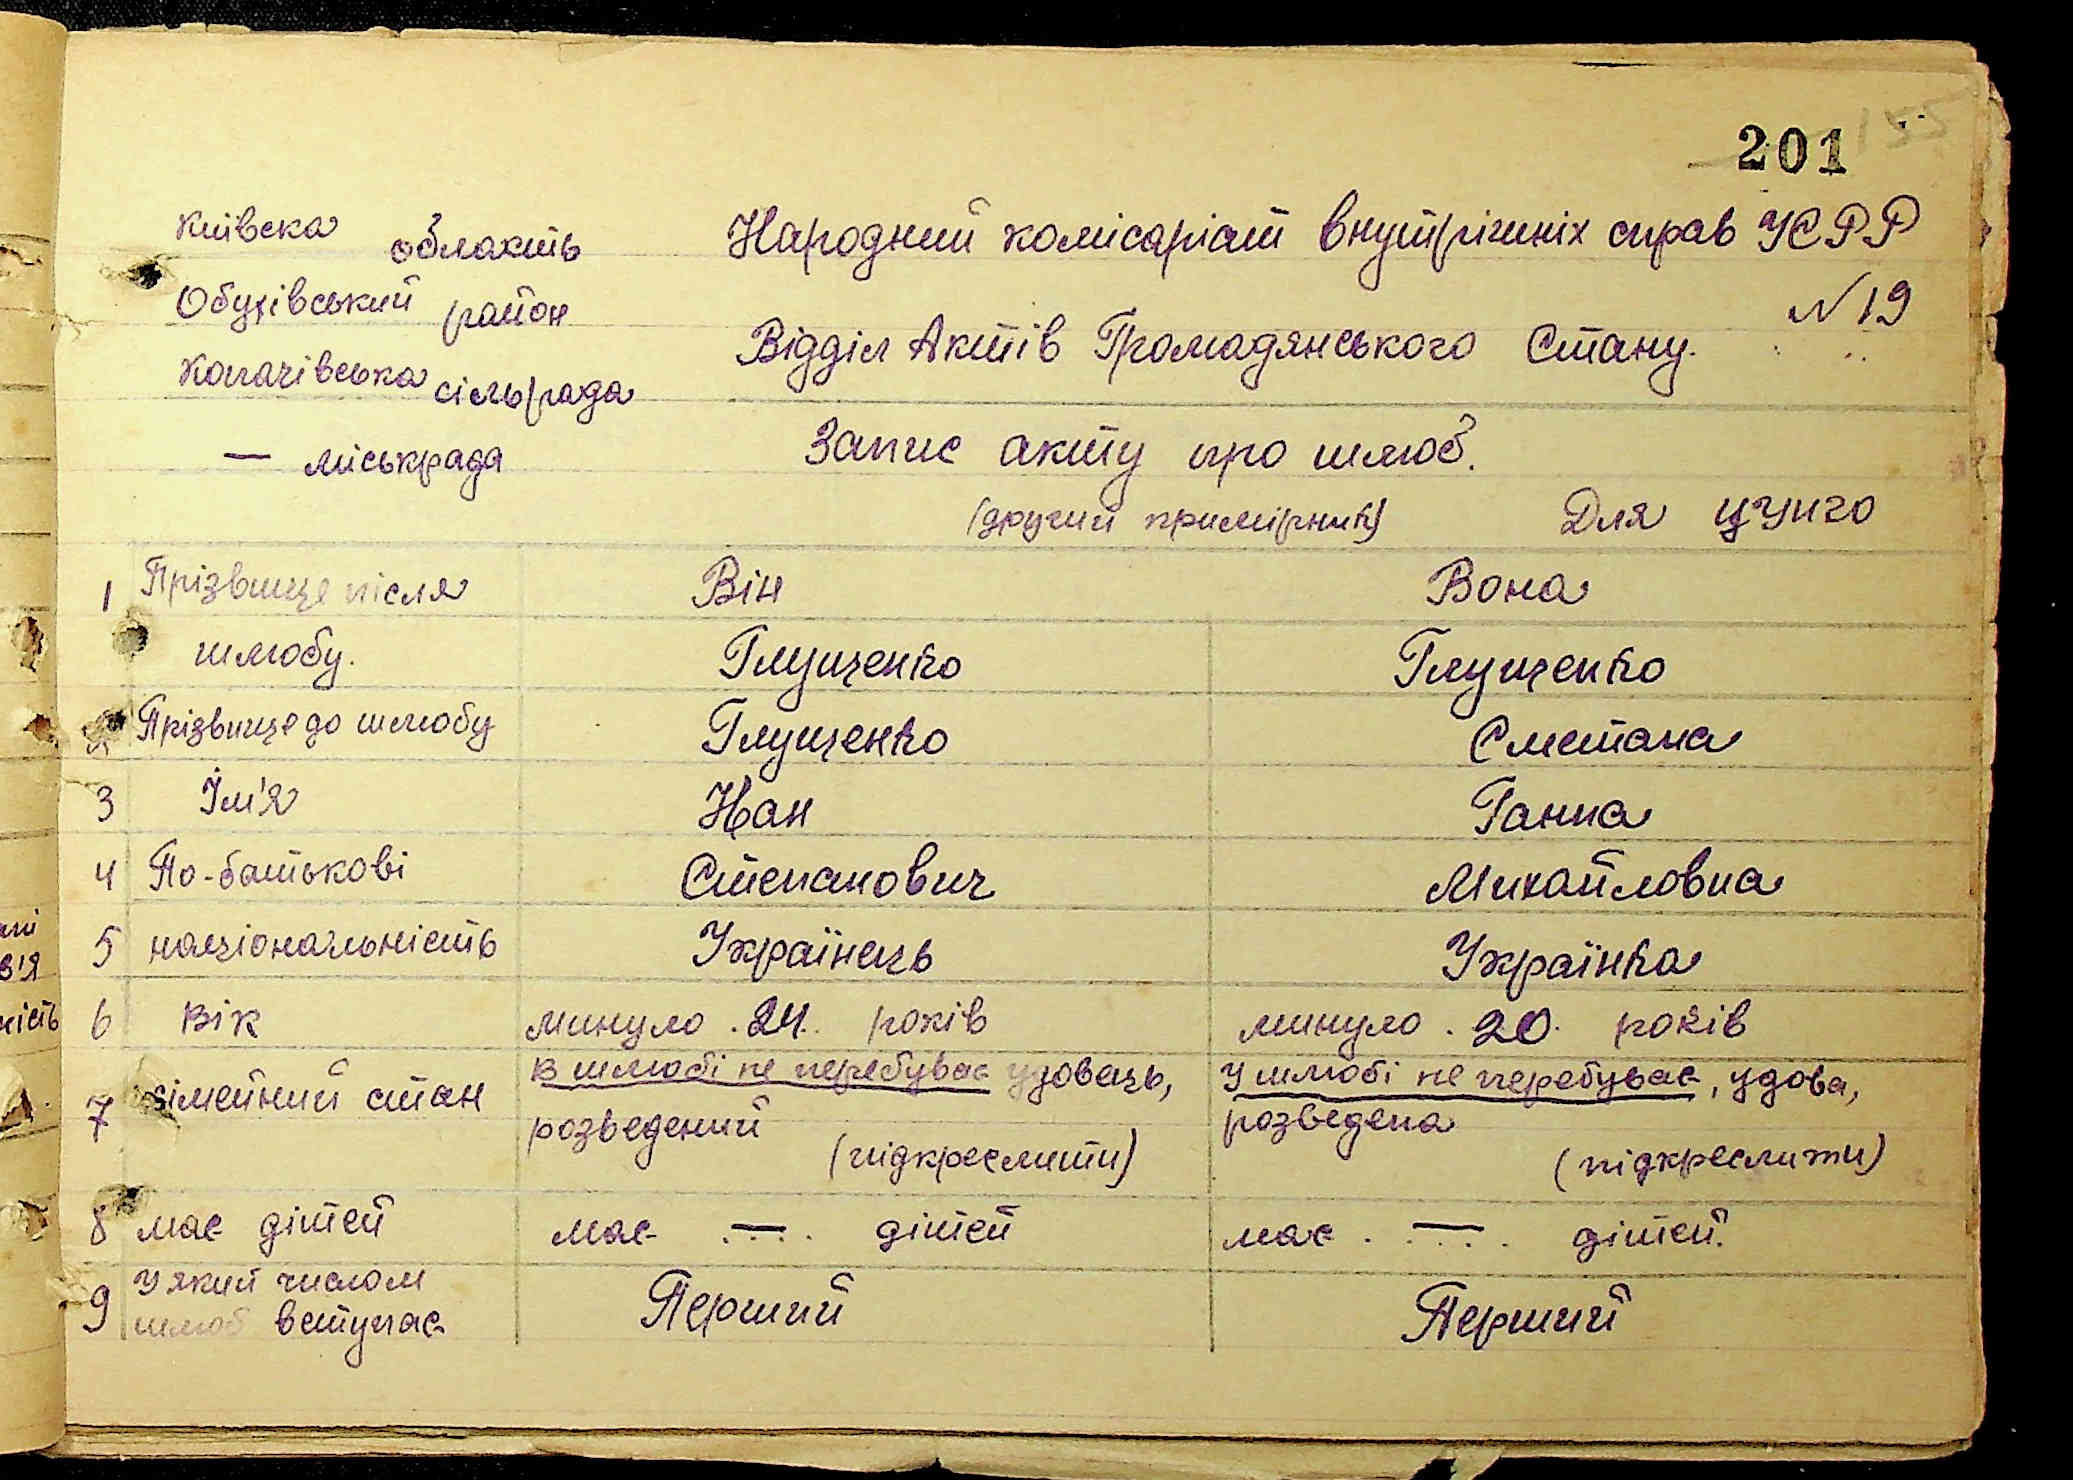 201
Київска область
Народний комісаріат внутрішніх справ УСРР
Обухівський район
N 19
Копачівська сільрада
Відділ Актів Громадянського Стану.
— міськрада
Запис акту про шлюб.
(другий примірник) Для ЦУНГО
1 Прізвище після шлюбу. Він Вона
Глущенко Глущенко
Прізвище до шлюбу Глущенко Сметана
3 Ім'я Іван Ганна
4 По-батькові Степанович Михайловна
5 національність Українець Українка
6 Вік минуло 24 років минуло 20 років
7 сімейний стан В шлюбі не перебуває удовець, У шлюбі не перебуває, удова,
розведений розведена
(підкреслити) (підкреслити)
8 має дітей має — дітей має — дітей.
9 У який числом Перший Перший
шлюб вступає